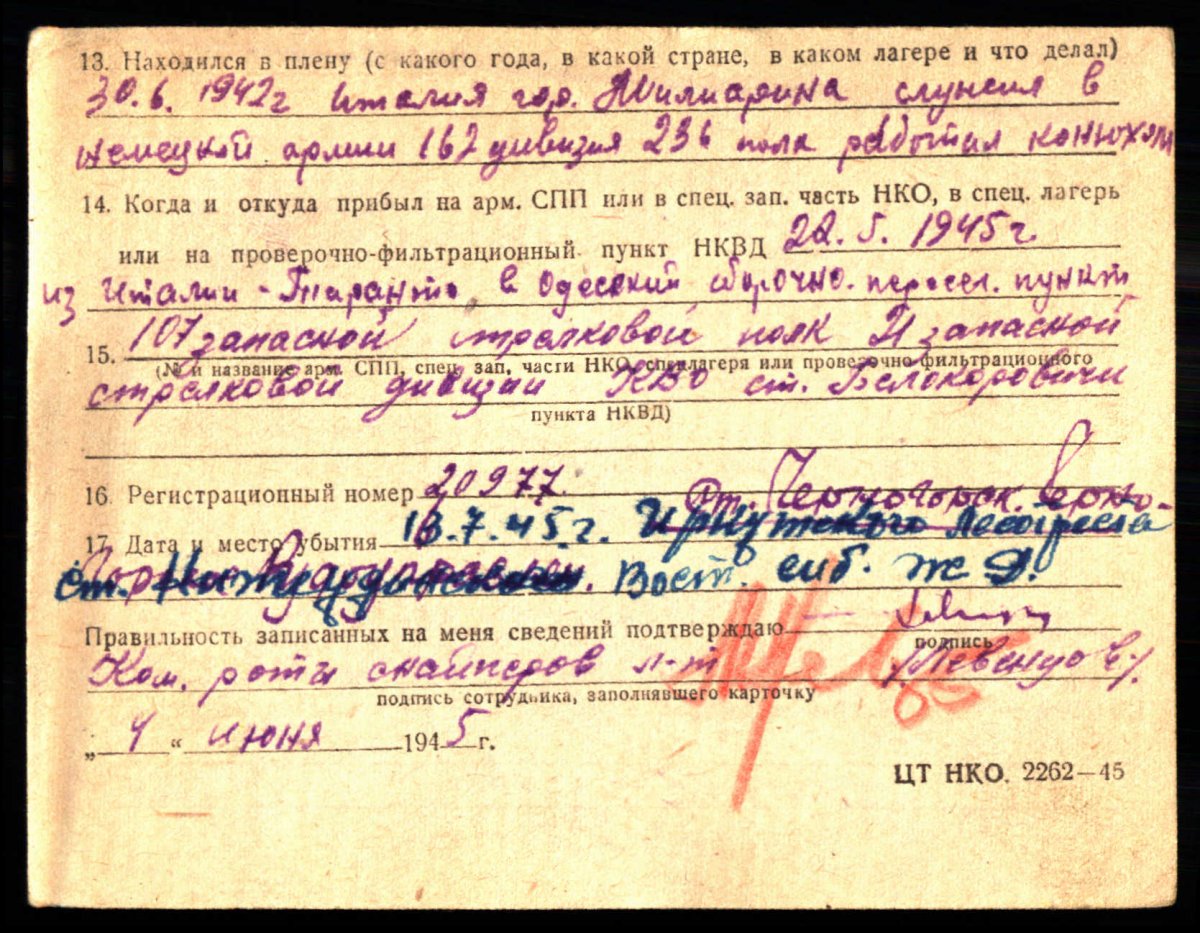 13. Находился в плену (с какого года, в какой стране, в каком лагере и что делал)
30.6. 1942г Италия гор. Милиарина служил в
немецкой армии 162 дивизия 236 полк работал конюхом
14. Когда и откуда прибыл на арм. СПП или в спец. зап. часть НКО, в спец. лагерь
или на проверочно-фильтрационный пункт НКВД 22.5. 1945г.
из Италии - Таранто в Одеский сборочно. пересел. пункт
107 запаской стрелковой полк 21 запаской
15. (№ и название арм. СПП, спец. зап. части НКО, спецлагеря или проверочно-фильтрационного
стрелковой дивизии КВО ст. Белокоровичи
пункта НКВД)
16. Регистрационный номер 20977. Ст. Черногорск.
17. Дата и место убытия 13.7.45г. Иркутского Лесотреста
ст. Нижнеудинск. Вост. сиб. ж. д.
Правильность записанных на меня сведений подтверждаю
подпись
Ком. роты снайперов л-т /Левендов/
подпись сотрудника, заполнявшего карточку
„ 4 “ июня 1945 г.
ЦТ НКО. 2262—45